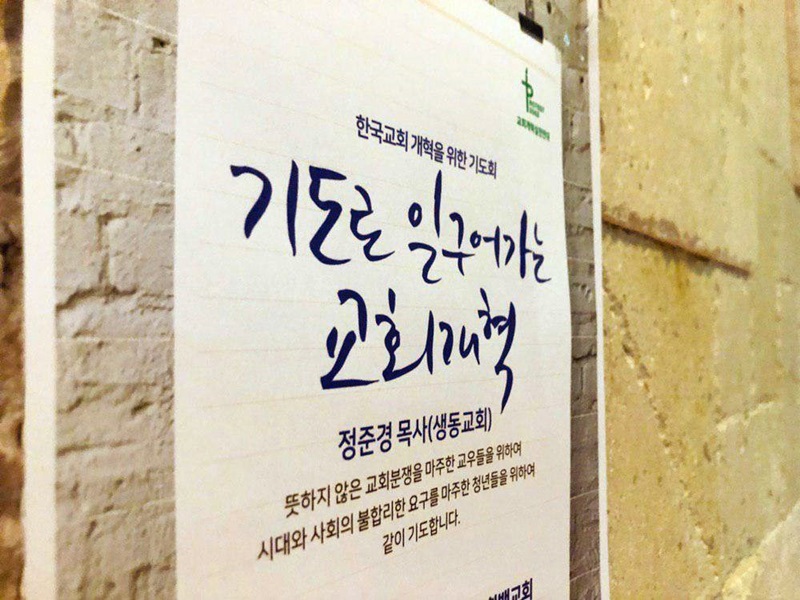 교회개혁실천연대
한국교회 개혁을 위한 기도회
기도로 일구어가는
교회개혁
정준경 목사(생동교회)
뜻하지 않은 교회분쟁을 마주한 교우들을 위하여
시대와 사회의 불합리한 요구를 마주한 청년들을 위하여
같이 기도합니다.